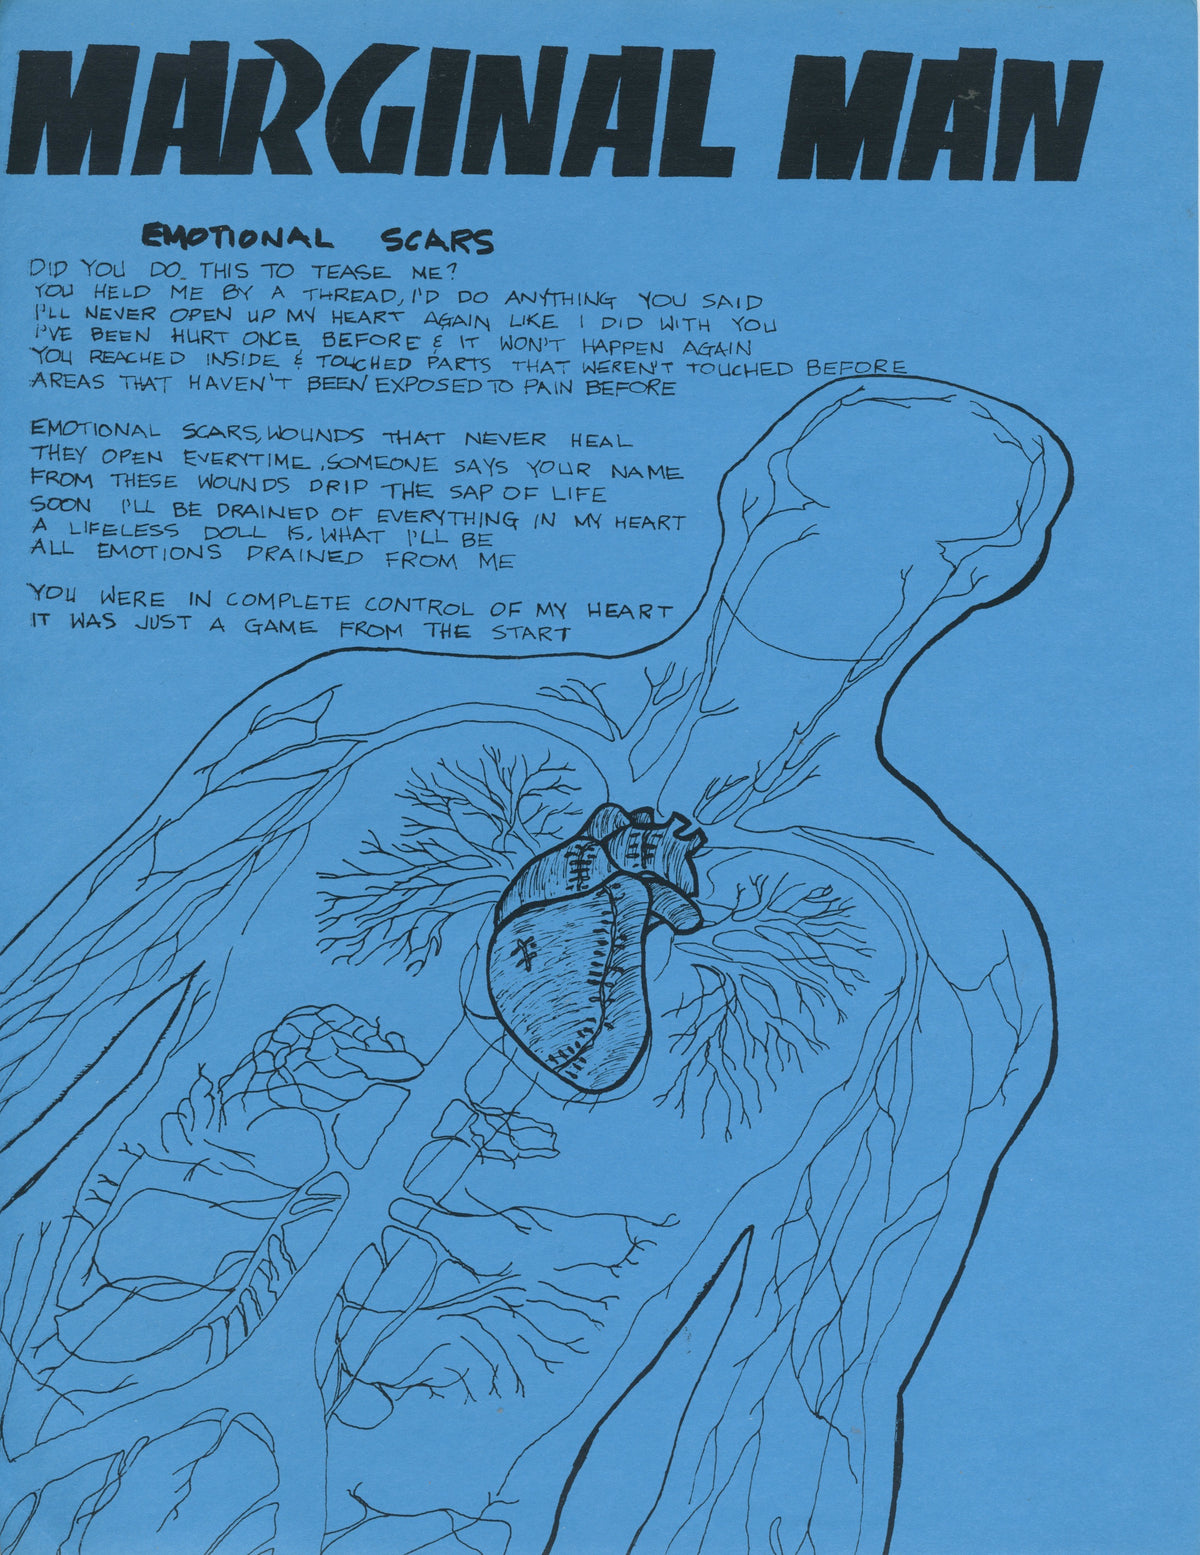 MARGINAL MAN
EMOTIONAL SCARS
DID YOU DO THIS TO TEASE ME?
YOU HELD ME BY A THREAD, I'D DO ANYTHING YOU SAID
I'LL NEVER OPEN UP MY HEART AGAIN LIKE I DID WITH YOU
I'VE BEEN HURT ONCE BEFORE & IT WON'T HAPPEN AGAIN
YOU REACHED INSIDE & TOUCHED PARTS THAT WEREN'T TOUCHED BEFORE
AREAS THAT HAVEN'T BEEN EXPOSED TO PAIN BEFORE
EMOTIONAL SCARS, WOUNDS THAT NEVER HEAL
THEY OPEN EVERYTIME, SOMEONE SAYS YOUR NAME
FROM THESE WOUNDS DRIP THE SAP OF LIFE
SOON I'LL BE DRAINED OF EVERYTHING IN MY HEART
A LIFELESS DOLL IS, WHAT I'LL BE
ALL EMOTIONS DRAINED FROM ME
YOU WERE IN COMPLETE CONTROL OF MY HEART
IT WAS JUST A GAME FROM THE START